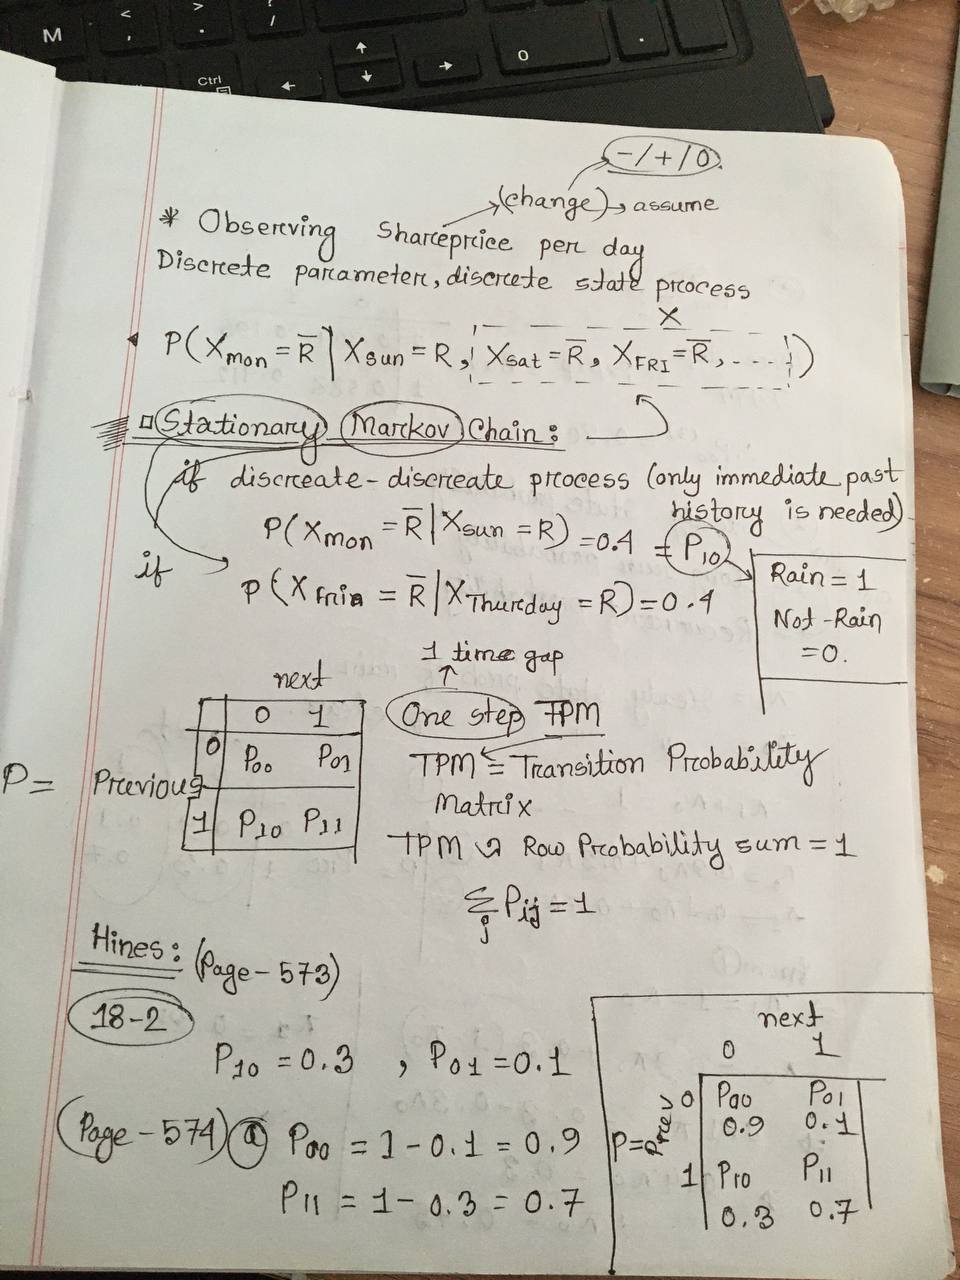 M
<
,
>
.
?
/
Ctrl
↑
←
↓
→
0
.
-/+/0
(change)→ assume
* Observing Shareprice per day
Discrete parameter, discrete state process
X
P(X_mon = R̅ | X_sun = R, X_sat = R̅, X_FRI = R̅, ....)
□ Stationary Markov Chain:
if discreate-discreate process (only immediate past
history is needed)
P(X_mon = R̅ | X_sun = R) = 0.4 = P₁₀
if P(X_Fri = R̅ | X_Thursday = R) = 0.4
Rain = 1
Not-Rain
= 0.
1 time gap
next
0 1
P = Previous
0 P₀₀ P₀₁
1 P₁₀ P₁₁
One step TPM
TPM = Transition Probability
Matrix
TPM → Row Probability sum = 1
Σ_j P_ij = 1
Hines: (Page-573)
18-2
P₁₀ = 0.3 , P₀₁ = 0.1
(Page-574) ⓐ P₀₀ = 1 - 0.1 = 0.9
P₁₁ = 1 - 0.3 = 0.7
next
0 1
P = Prev
0 P₀₀ P₀₁
0.9 0.1
1 P₁₀ P₁₁
0.3 0.7